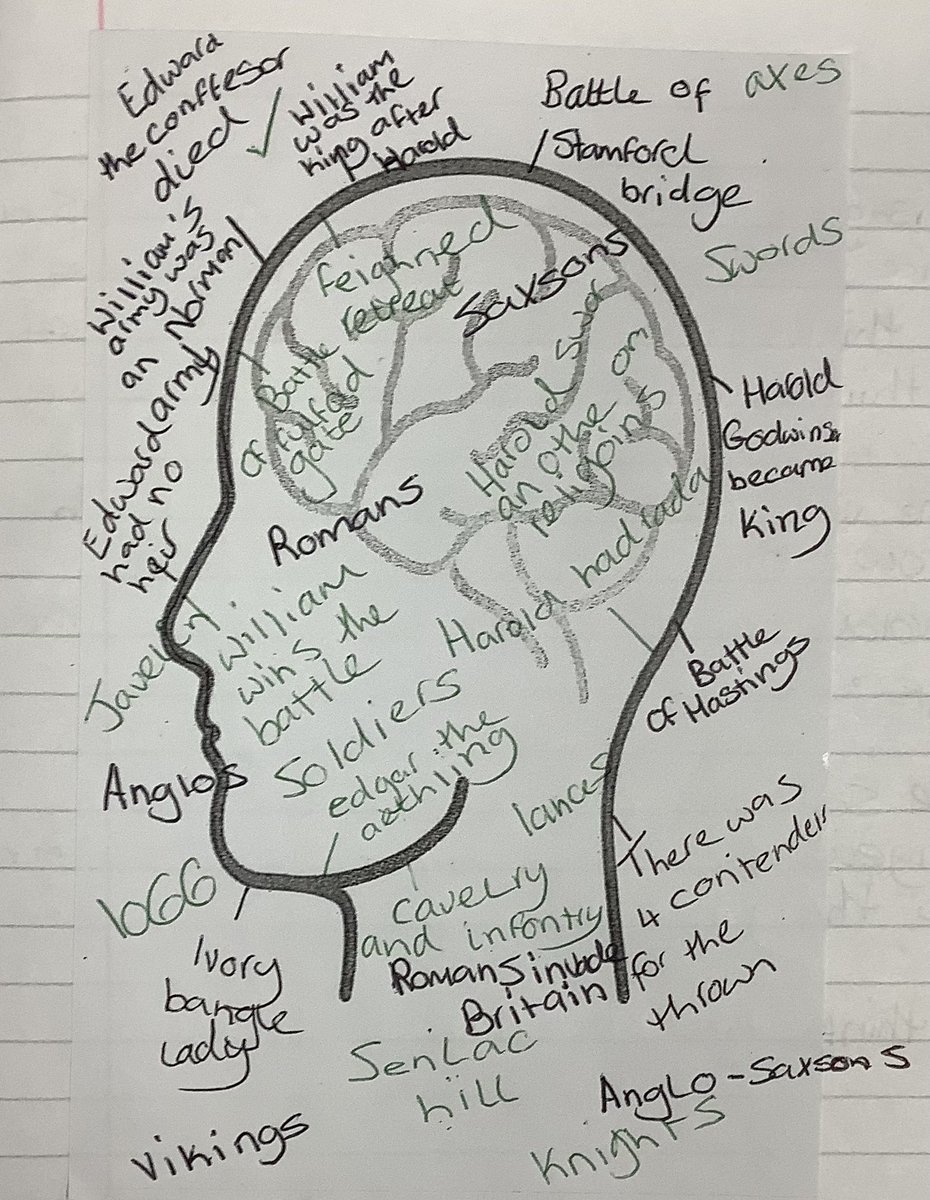 Edward
the conffesor
died
William
was the
king after
Harold
Battle of
Stamford
bridge
axes
Swords
William's
army was
an Norman
army
Edward
had no
heir
feighned
retreat
Saxsons
Battle
of fulford
gate
Harold swor
an othe on
religoins
Harold
Godwinson
became
King
Romans
Harold hadrada
William
wins the
battle
Javelin
Soldiers
edgar the
aethling
Battle
of Hastings
Anglos
lances
There was
4 contenders
for the
thrown
1066
cavelry
and infontry
Romans invade
Britain
Ivory
bangle
Lady
SenLac
hill
Anglo-Saxsons
Knights
Vikings